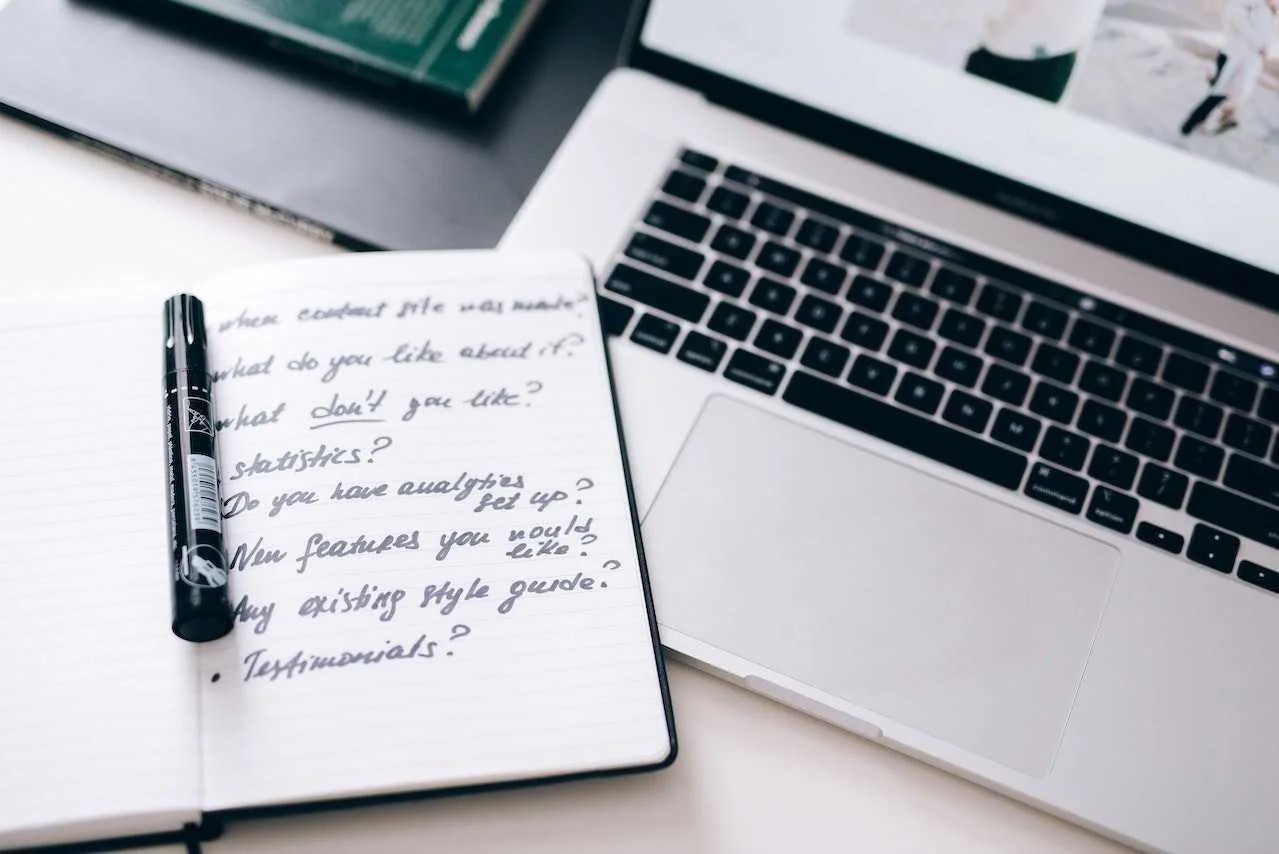 when content site was made?
what do you like about it?
what don't you like?
statistics?
Do you have analytics
set up?
New features you would
like?
Any existing style guide?
. Testimonials?
command
option
command
option